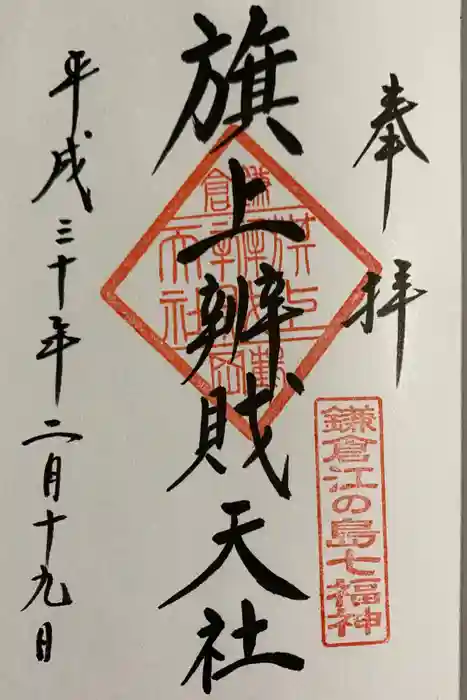 奉拝
鎌倉江の島七福神
旗上辨財天社
平成三十年二月十九日